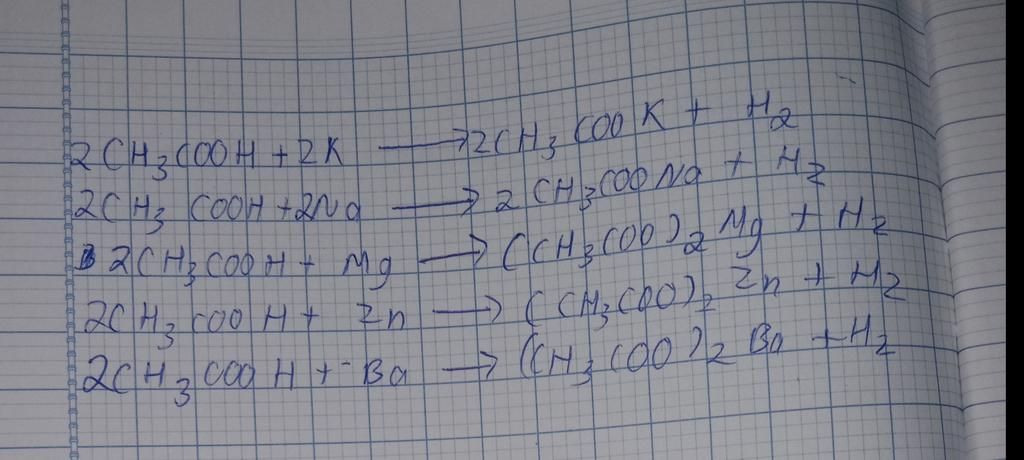 2CH₃COOH + 2K ⟶ 2CH₃COOK + H₂
2CH₃COOH + 2Na ⟶ 2CH₃COONa + H₂
2CH₃COOH + Mg ⟶ (CH₃COO)₂Mg + H₂
2CH₃COOH + Zn ⟶ (CH₃COO)₂Zn + H₂
2CH₃COOH + Ba ⟶ (CH₃COO)₂Ba + H₂